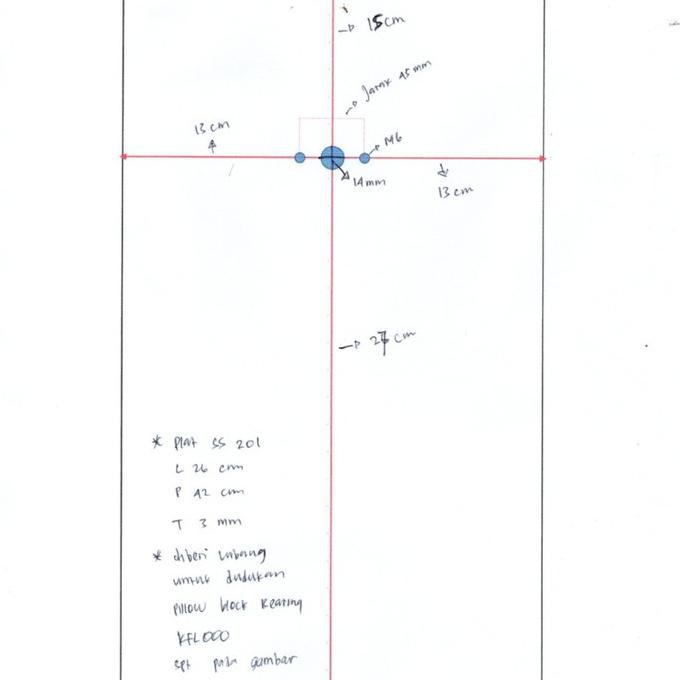 15cm
Jarak 45 mm
13 cm
M6
14mm
13 cm
27 cm
* Plat SS 201
L 26 cm
P 42 cm
T 3 mm
* diberi lubang
untuk dudukan
pillow block Bearing
KFL000
spt pada gambar